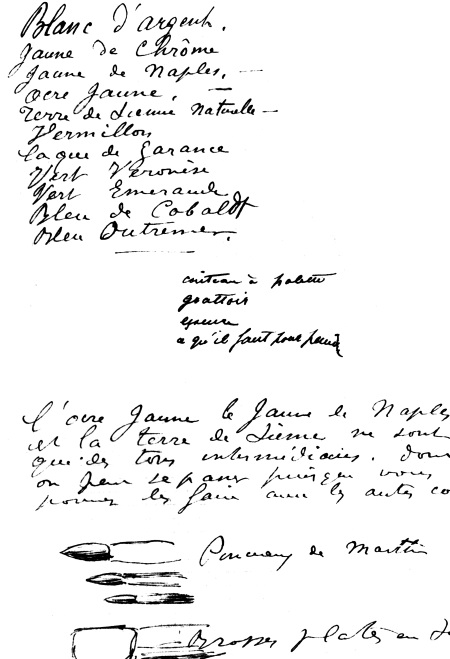 Blanc d'argent.
Jaune de Chrôme
Jaune de Naples. —
Ocre Jaune. —
Terre de Sienne Naturelle —
Vermillon
laque de Garance
Vert Véronèse
Vert Emeraude
Bleu de Cobaldt
Bleu Outremer.
couteau à palette
grattoir
essence
ce qu'il faut pour peindre
l'ocre Jaune le Jaune de Naples
et la terre de Sienne ne sont
que des tons intermédiaires. dont
on peu se passer puisque vous
pouvez les faire avec les autres co
Pinceaux de Marttre
Brosses plates en